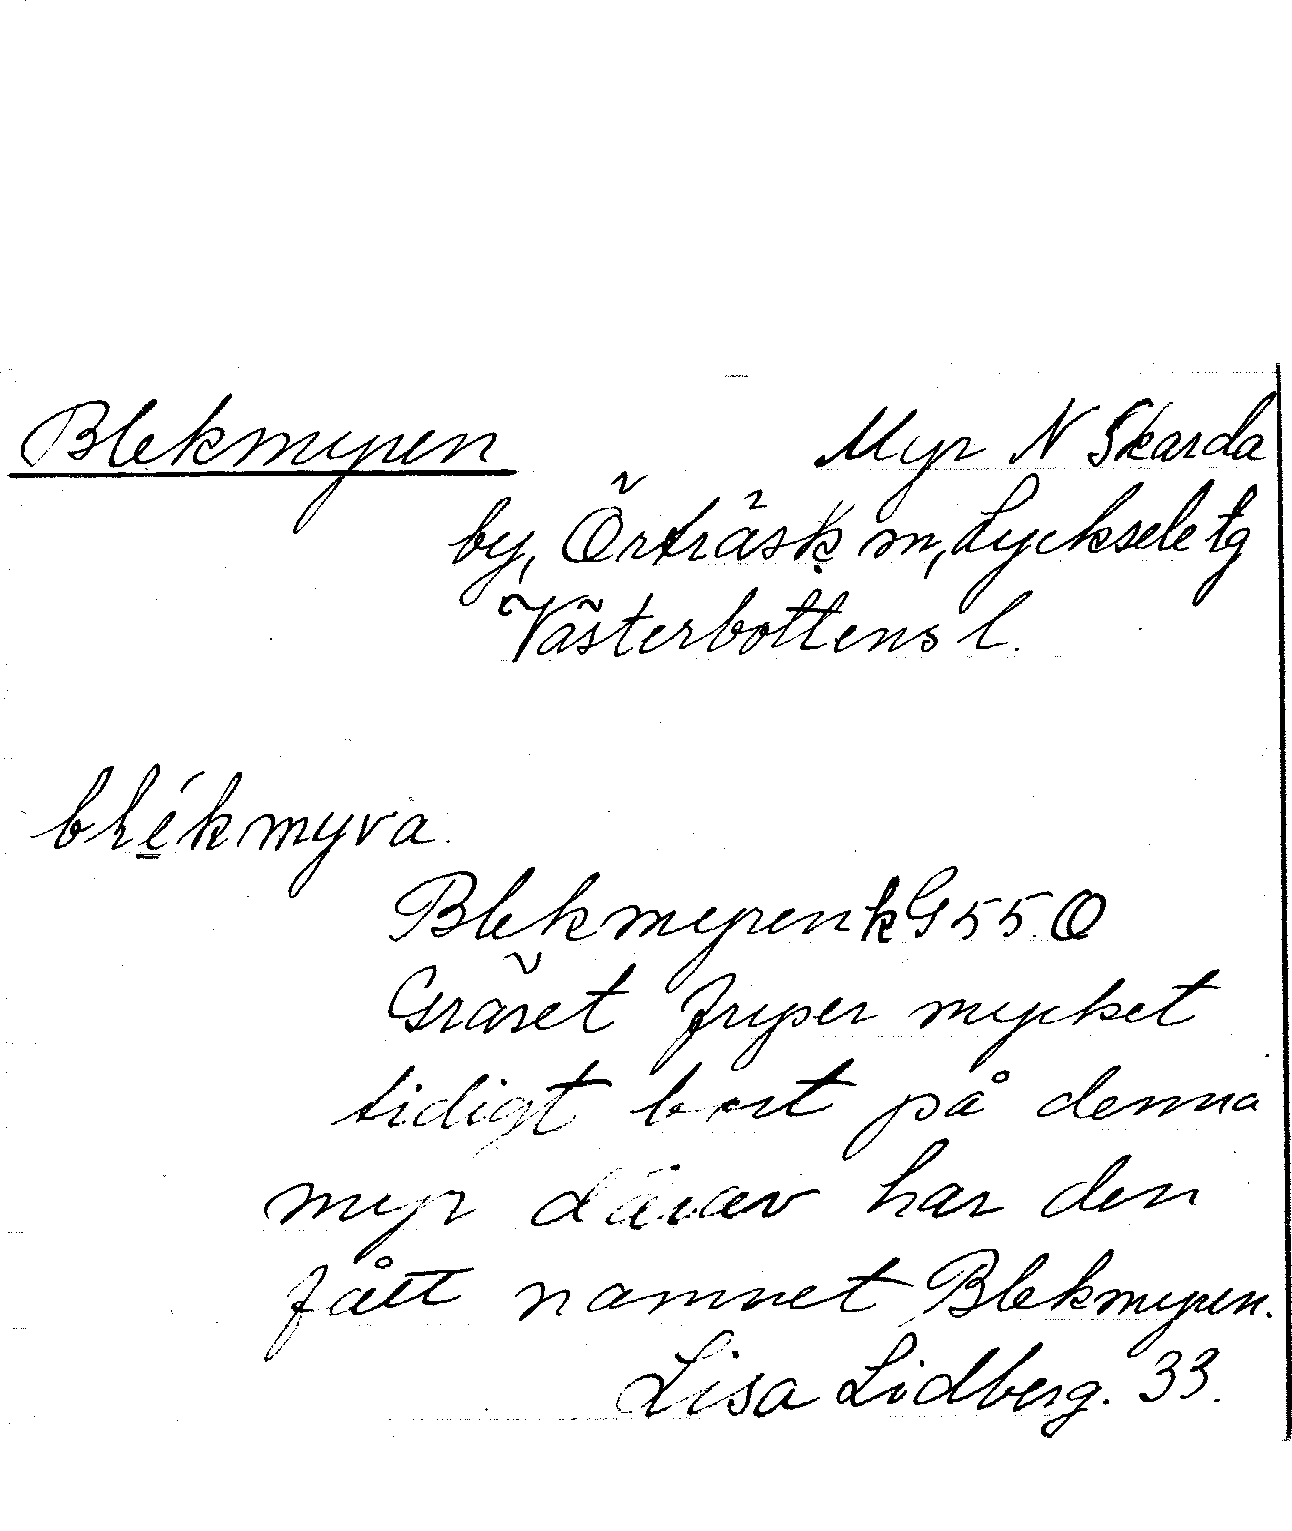 Blekmyren Myr N Skarda
by, Örträsk m, Lycksele tg
Västerbottens l.
blékmyra.
Blekmyren k G 55 O
Gräset fryser mycket
tidigt bort på denna
myr därav har den
fått namnet Blekmyren.
Lisa Lidberg. 33.